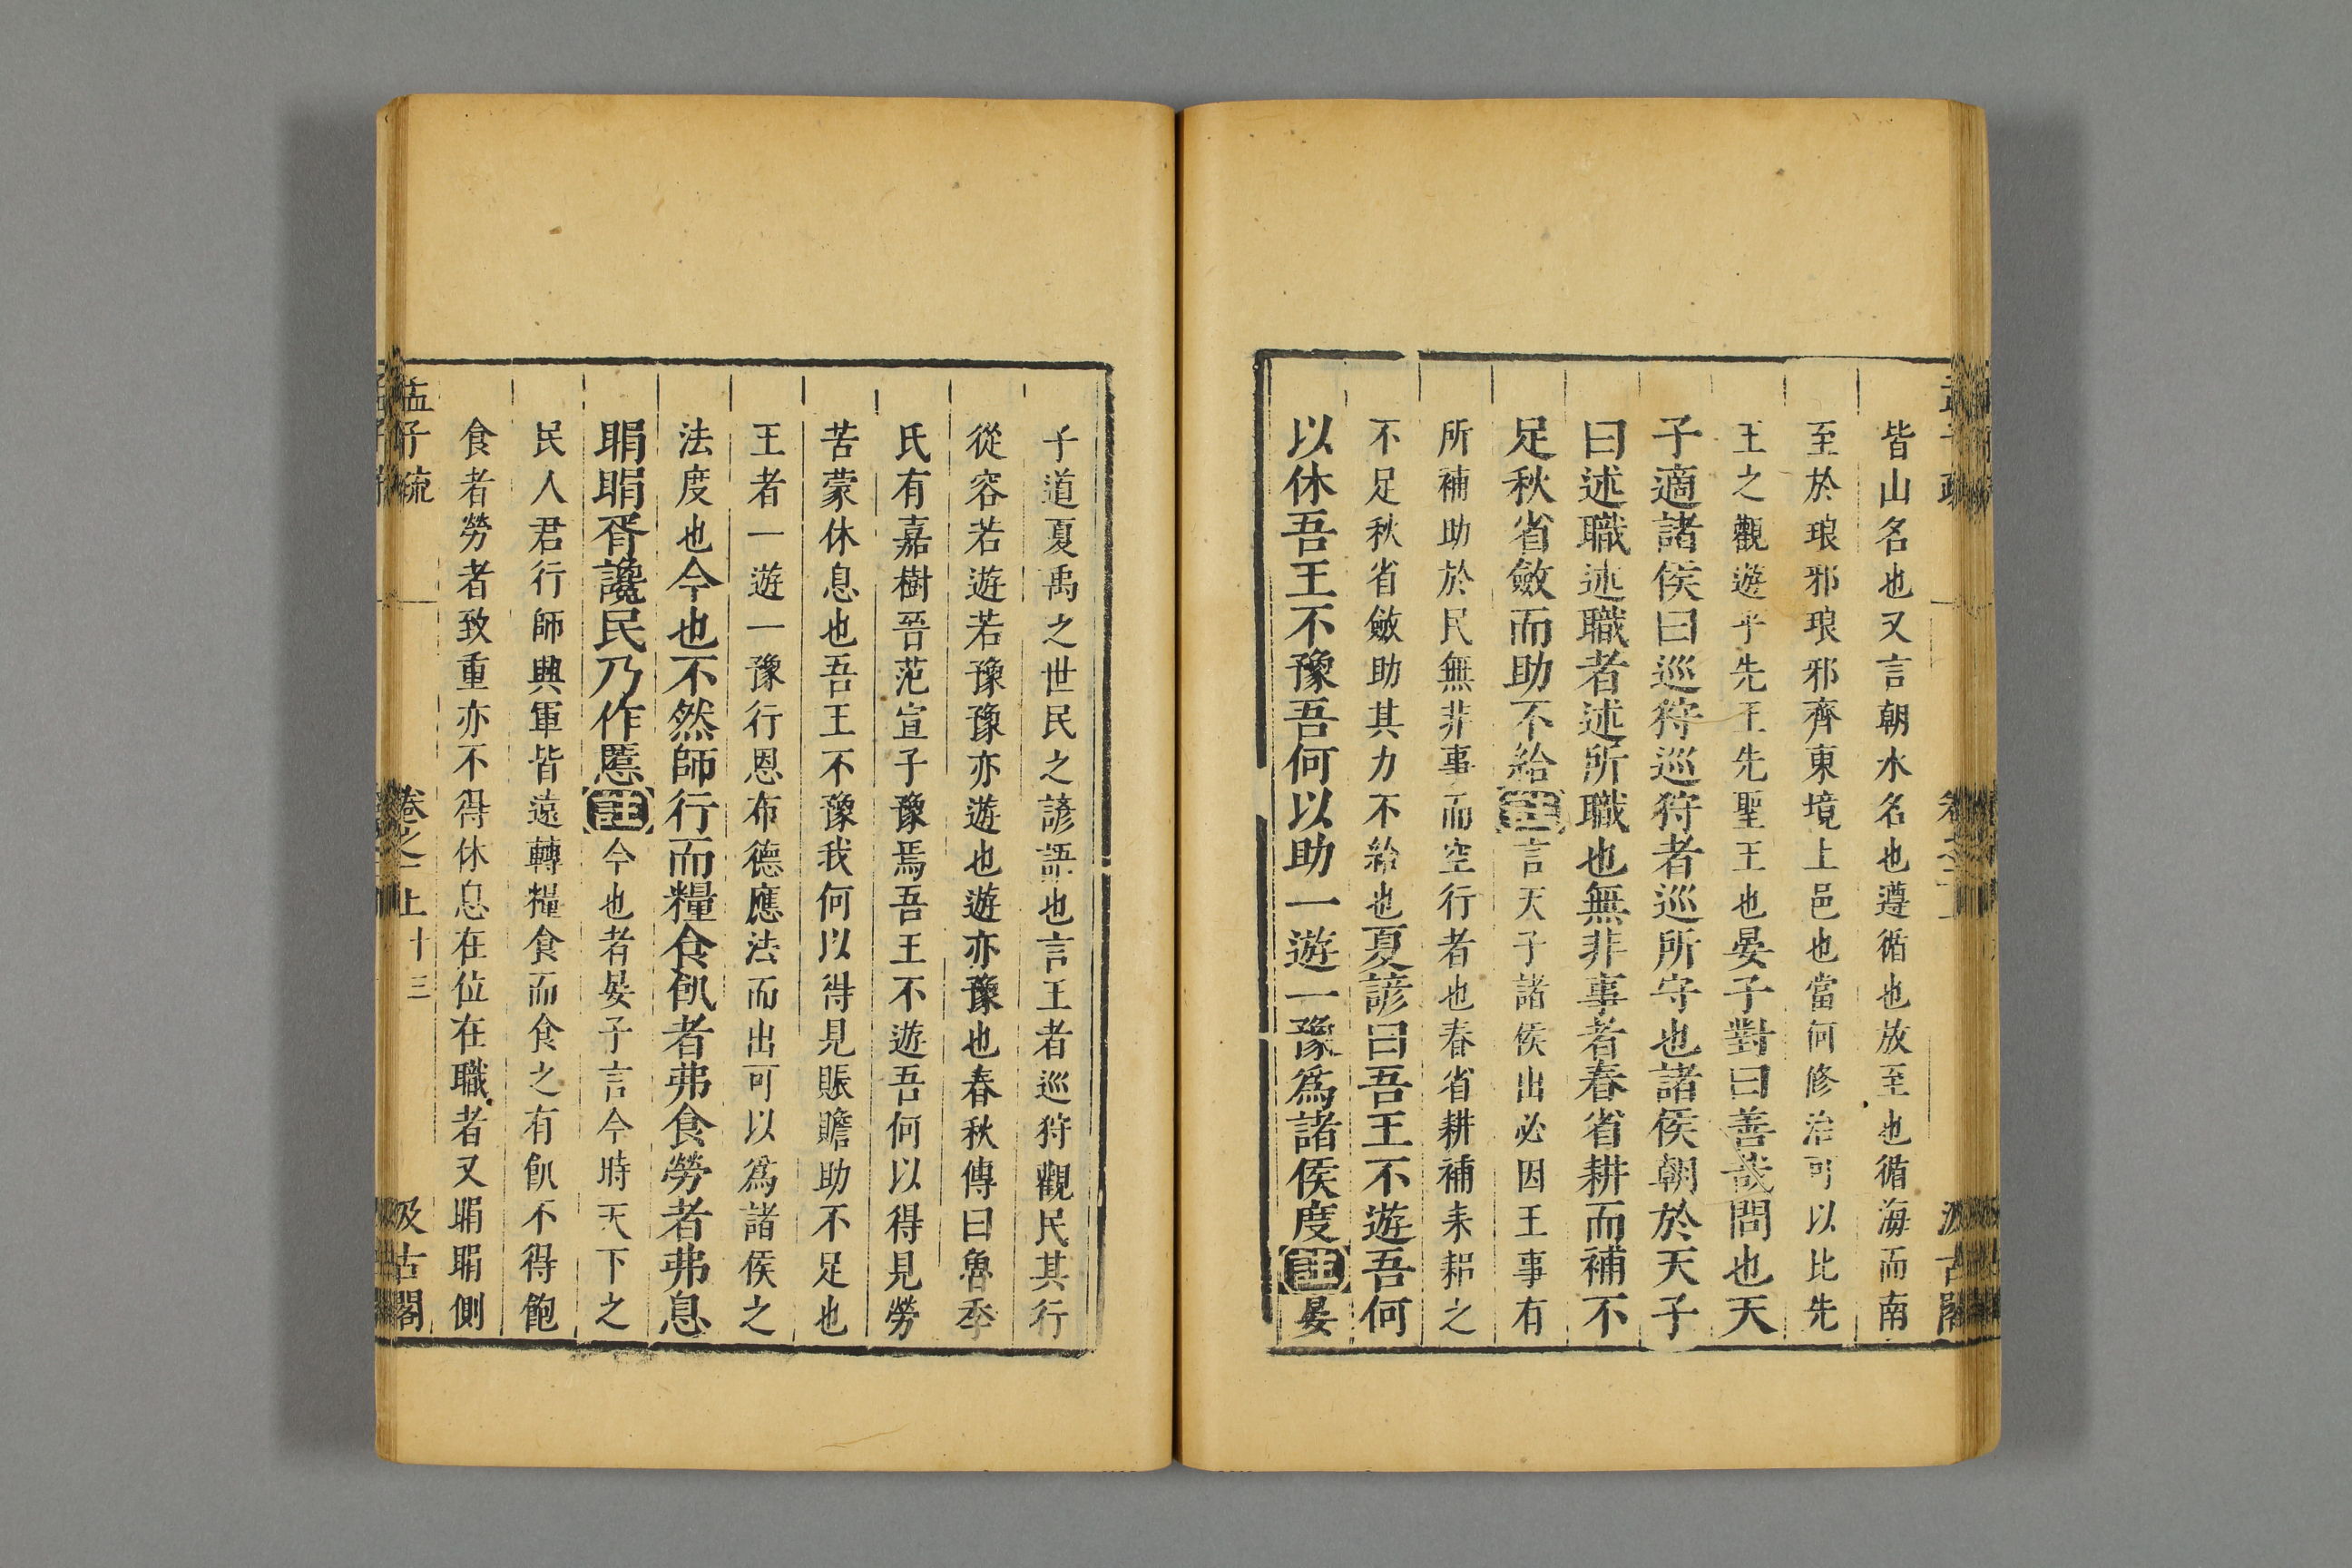 皆山名也又言朝水名也遵循也放至也循海而南
至於琅邪琅邪齊東境上邑也當何修治可以比先
王之觀遊乎先王先聖王也晏子對曰善哉問也天
子適諸侯曰巡狩巡狩者巡所守也諸侯朝於天子
曰述職述職者述所職也無非事者春省耕而補不
足秋省斂而助不給註言天子諸侯出必因王事有
所補助於民無非事而空行者也春省耕補耒耜之
不足秋省斂助其力不給也夏諺曰吾王不遊吾何
以休吾王不豫吾何以助一遊一豫爲諸侯度註晏
子道夏禹之世民之諺語也言王者巡狩觀民其行
從容若遊若豫豫亦遊也遊亦豫也春秋傳曰魯季
氏有嘉樹晉范宣子豫焉吾王不遊吾何以得見勞
苦蒙休息也吾王不豫我何以得見賑贍助不足也
王者一遊一豫行恩布德應法而出可以爲諸侯之
法度也今也不然師行而糧食飢者弗食勞者弗息
睊睊胥讒民乃作慝註今也者晏子言今時天下之
民人君行師興軍皆遠轉糧食而食之有飢不得飽
食者勞者致重亦不得休息在位在職者又睊睊側
孟子疏 上 十三 汲古閣